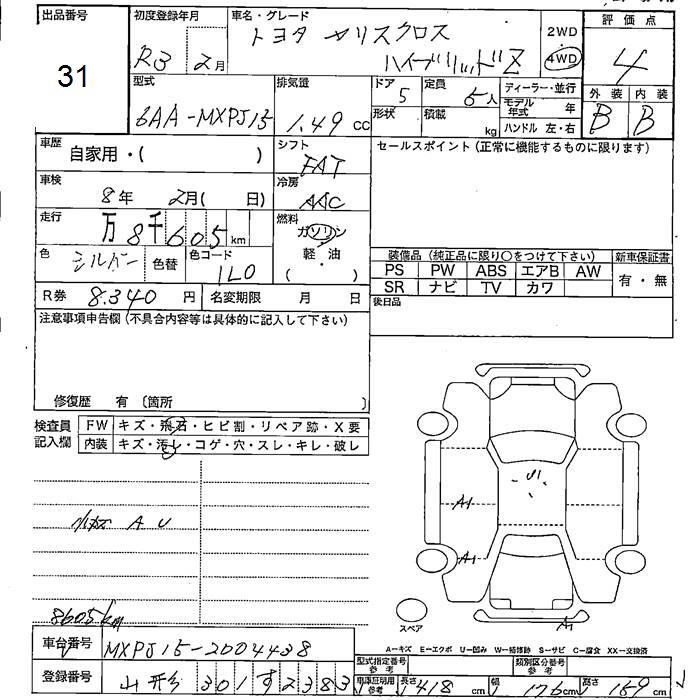 出品番号 31
初度登録年月 R3 2月
車名・グレード トヨタ ヤリスクロス
ハイブリッドZ
2WD
4WD
評価点 4
外装 内装
B B
型式 6AA-MXPJ15
排気量 1.49 cc
ドア 5
形状
定員 5人
積載 kg
ディーラー・並行
モデル年式 年
ハンドル 左・右
車歴 自家用・( )
シフト FAT
セールスポイント(正常に機能するものに限ります)
車検 8年 2月( 日)
冷房 AAC
走行 万8千605km
燃料 ガソリン
軽・油
( )
色 シルバー 色替 色コード 1L0
装備品(純正品に限り〇をつけて下さい) 新車保証書
PS PW ABS エアB AW 有・無
SR ナビ TV カワ
R券 8,340円 名変期限 月 日
後日品
注意事項申告欄(不具合内容等は具体的に記入して下さい)
修復歴 有〔箇所 〕
検査員記入欄
FW キズ・飛石・ヒビ割・リペア跡・X要
内装 キズ・汚レ・コゲ・穴・スレ・キレ・破レ
小キズ A U
U1
A1
A1
A1
スペア
8605km
車台番号 MXPJ15-2004438
A=キズ E=エクボ U=凹み W=補修跡 S=サビ C=腐食 XX=交換済
登録番号 山形 301 す 2383
型式指定番号 参考
類別区分番号 参考
車庫証明用 参考
長さ 418cm 幅 176cm 高さ 159cm